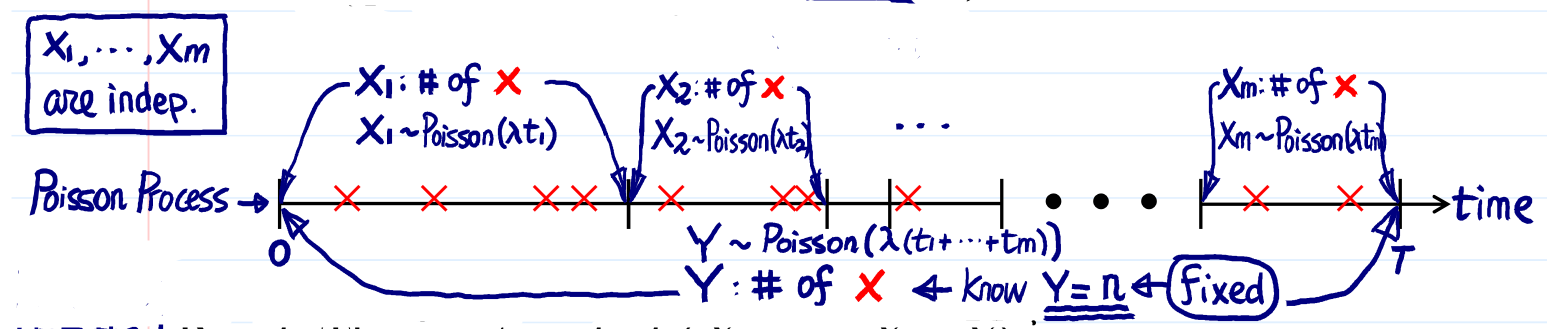 X1, ..., Xm
are indep.
X1: # of ×
X1 ~ Poisson(λt1)
X2: # of ×
X2 ~ Poisson(λt2)
...
Xm: # of ×
Xm ~ Poisson(λtm)
Poisson Process →
time
0
T
Y ~ Poisson(λ(t1+...+tm))
Y: # of × ← know Y = n ← fixed